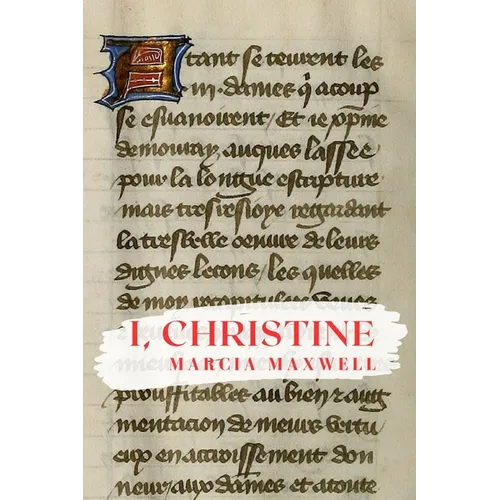 Atant se teurent les
.iii. dames q̃ acoup
se esuanoirent / Et ie xp̃ine
demouray auques lassee
pour la longue escripture
mais tresresioye regardant
la tresbelle oeuure de leurs
dignes lecons / les quelles
de moy recapitulees veues
I, CHRISTINE
MARCIA MAXWELL
prouffitables au bien et aug
mentacion de meurs vertu
eux en accroissement don
neur aux dames et atoute